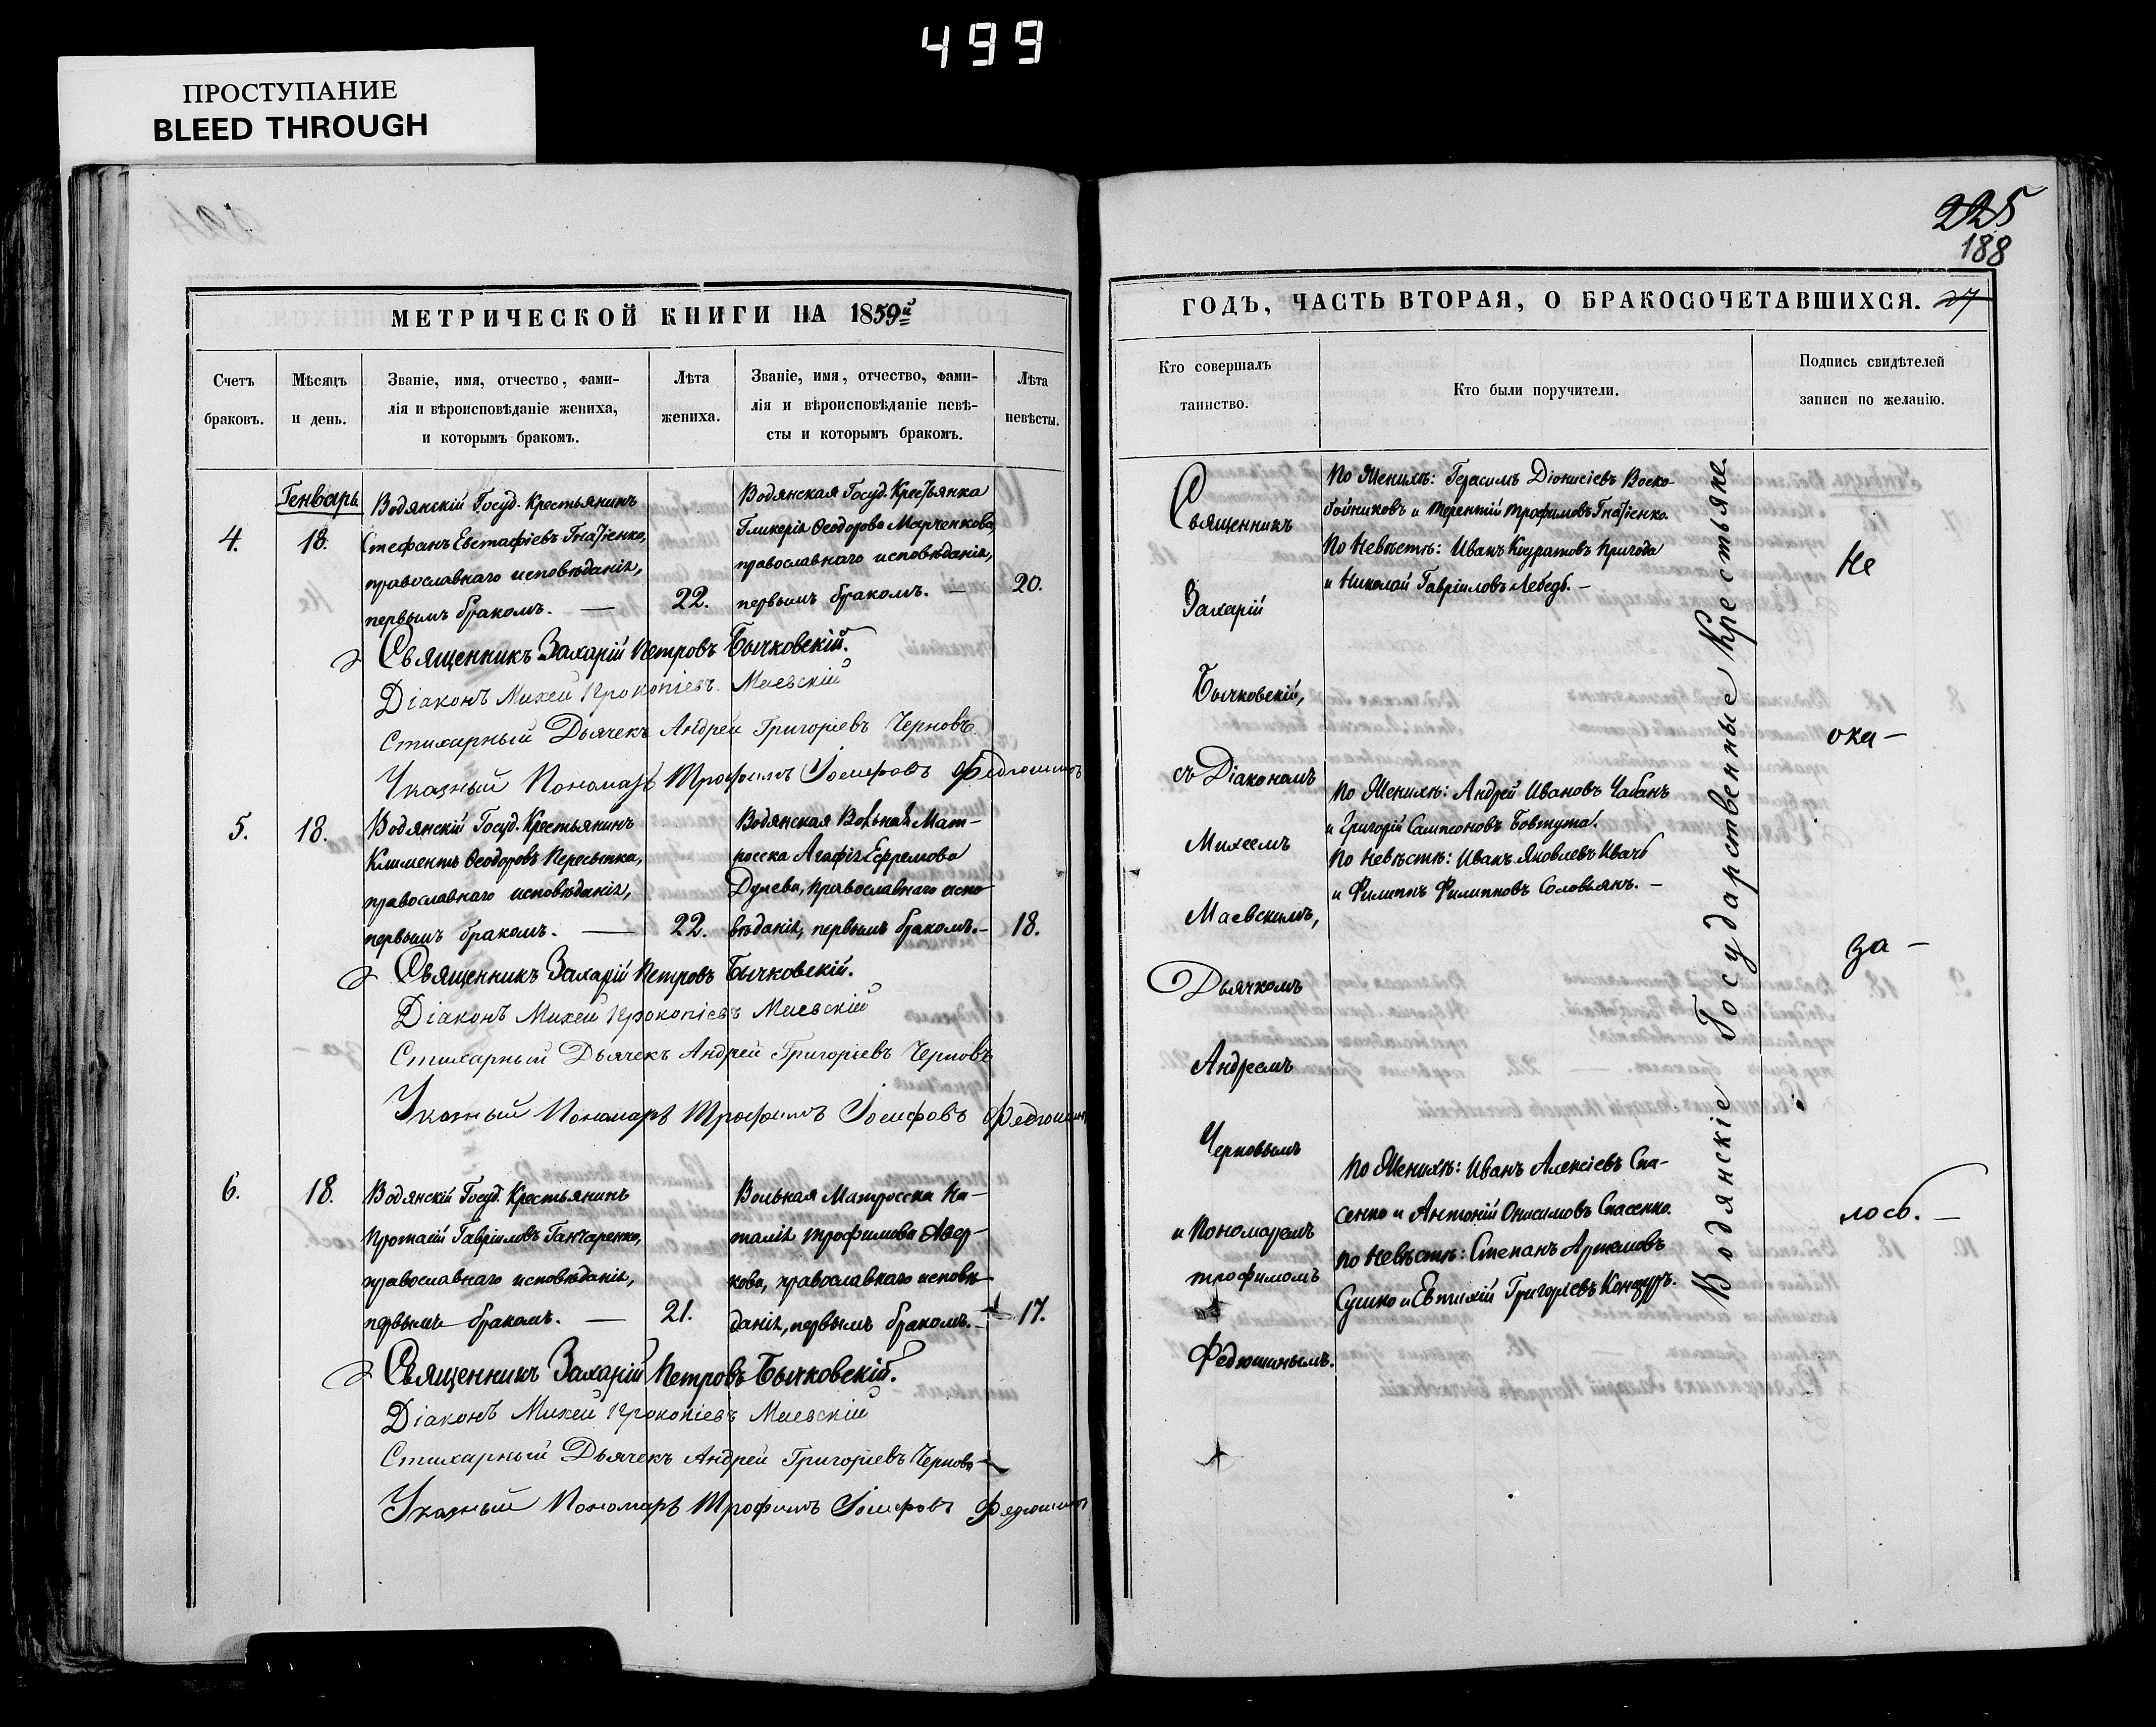 499
ПРОСТУПАНИЕ
BLEED THROUGH
МЕТРИЧЕСКОЙ КНИГИ НА 1859й
Счетъ браковъ.
Мѣсяцъ и день.
Званіе, имя, отчество, фами-
лія и вѣроисповѣданіе жениха,
и которымъ бракомъ.
Лѣта жениха.
Званіе, имя, отчество, фами-
лія и вѣроисповѣданіе невѣ-
сты и которымъ бракомъ.
Лѣта невѣсты.
Генварь
4.
18.
Водянскій Госуд. Крестьянинъ
Стефанъ Евстафіевъ Гнатіенко,
православнаго исповѣданія,
первымъ бракомъ. —
22.
Водянская Госуд. Крестьянка
Гликерія Ѳеодорова Марченкова,
православнаго исповѣданія,
первымъ бракомъ. —
20.
Священникъ Захарій Петровъ Бычковскій.
Діаконъ Михей Прокопіевъ Маевскій
Стихарный Дьячекъ Андрей Григоріевъ Черновъ
Указный Пономарь Трофимъ Іосифовъ Федюшинъ
5.
18.
Водянскій Госуд. Крестьянинъ
Климентъ Ѳеодоровъ Пересыпка,
православнаго исповѣданія,
первымъ бракомъ. —
22.
Водянская Вольная Мат-
росска Агафія Ефремова
православнаго испо-
вѣданія, первымъ бракомъ. —
18.
Священникъ Захарій Петровъ Бычковскій.
Діаконъ Михей Прокопіевъ Маевскій
Стихарный Дьячекъ Андрей Григоріевъ Черновъ
Указный Пономарь Трофимъ Іосифовъ Федюшинъ
6.
18.
Водянскій Госуд. Крестьянинъ
Протасій Гавріиловъ Ганчаренко,
православнаго исповѣданія,
первымъ бракомъ. —
21.
Вольная Матросска На-
талія Трофимова Авер-
кова, православнаго исповѣ-
данія, первымъ бракомъ. —
17.
Священникъ Захарій Петровъ Бычковскій.
Діаконъ Михей Прокопіевъ Маевскій
Стихарный Дьячекъ Андрей Григоріевъ Черновъ
Указный Пономарь Трофимъ Іосифовъ Федюшинъ
225
188
ГОДЪ, ЧАСТЬ ВТОРАЯ, О БРАКОСОЧЕТАВШИХСЯ. 27
Кто совершалъ
таинство.
Кто были поручители.
Подпись свидѣтелей
записи по желанію.
Священникъ
Захарій
Бычковскій,
съ Діакономъ
Михеемъ
Маевскимъ,
Дьячкомъ
Андреемъ
Черновымъ
и Пономаремъ
Трофимомъ
Федюшинымъ.
По Женихѣ: Герасимъ Діонисіевъ Воско-
бойниковъ и Терентій Трофимовъ Гнатіенко.
По Невѣстѣ: Иванъ Кодратовъ Пригода
и Николай Гавріиловъ Лебедь. —
По Женихѣ: Андрей Ивановъ Чабанъ
и Григорій Сампсоновъ Бовтута.
По Невѣстѣ: Иванъ Яковлевъ
и Филиппъ Филипповъ Соловьянъ. —
По Женихѣ: Иванъ Алексіевъ Спа-
сенко и Антоній Онисимовъ Спасенко.
По Невѣстѣ: Степанъ Артемовъ
Сушко и Евтихій Григоріевъ
Водянскіе Государственные Крестьяне.
Не
ока —
за —
лось. —